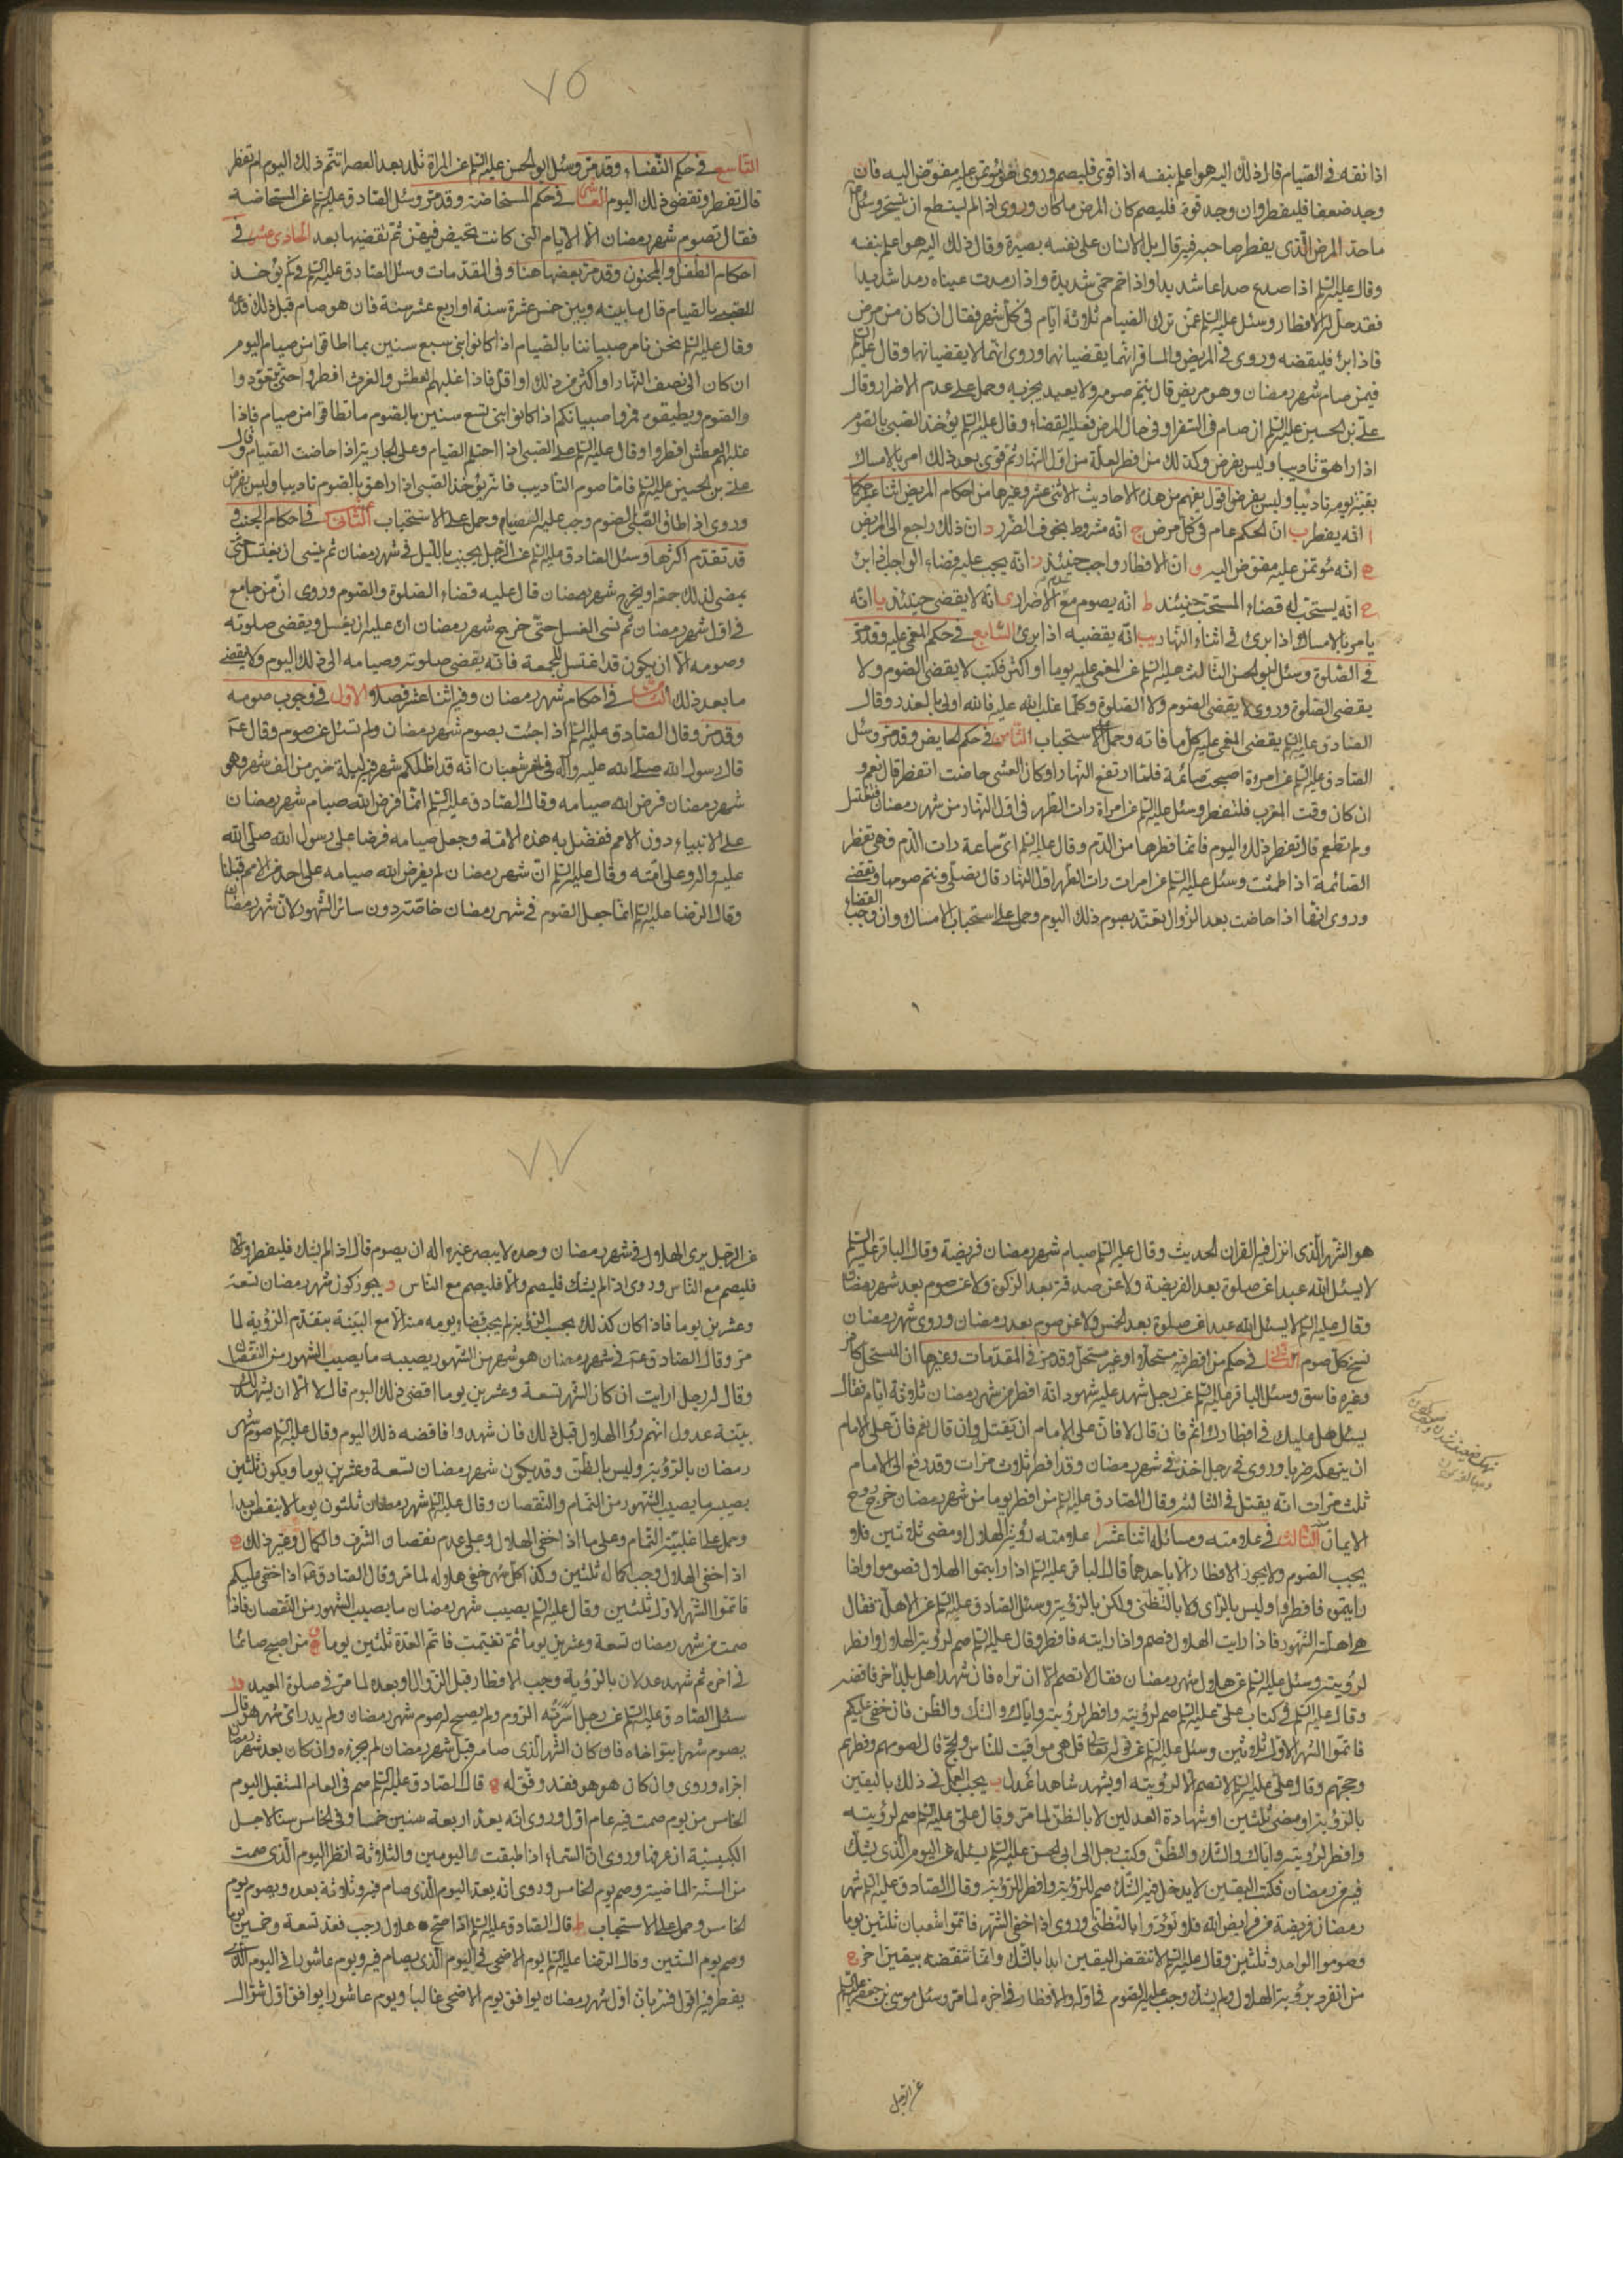 اذا نقه فى الصّيام قال ذلك اليه هو اعلم بنفسه اذا قوى فليصم وروى هو مؤتمن عليه مفوّض اليه فان
وجد ضعفا فليفطر وان وجد قوة فليصم كان المرض ما كان وروى اذا لم يستطع ان يتسحّر وسئل
ما حدّ المرض الّذى يفطر صاحبه فيه قال بل الانسان على نفسه بصيرة وقال ذلك اليه هو اعلم بنفسه
وقال عليه السّلم اذا صدع صداعا شديدا واذا حم حمّى شديدة واذا رمدت عيناه رمدا شديدا
فقد حلّ له الافطار وسئل عليه السّلم عمّن ترك الصّيام ثلاثة ايّام فى كلّ شهر فقال ان كان من مرض
فاذا برئ فليقضه وروى فى المريض والمسافر انّهما يقضيانها وروى انّهما لا يقضيانها وقال عليه السّلم
فيمن صام شهر رمضان وهو مريض قال يتم صومه ولا يعيد يجزيه وحمل على عدم الاضرار وقال
علىّ بن الحسين عليه السّلم ان صام فى السّفر او فى حال المرض فعليه القضاء وقال عليه السّلم يؤخذ الصّبى بالصّوم
اذا راهق تاديبا وليس بفرض وكذلك من افطر لعلّة من اوّل النّهار ثم قوى بعد ذلك امر بالامساك
بقيّة يومه تاديبا وليس بفرض اقول يفهم من هذه الاحاديث الاثنى عشر وغيرها من احكام المريض اثنا عشر حكما
ا انه يفطر ب انّ الحكم عام فى كلّ مرض ج انّه مشروط بخوف الضّرر د انّ ذلك راجع الى المريض
ه انّه مؤتمن عليه مفوّض اليه و انّ الافطار واجب حينئذ ز انه يجب عليه قضاء الواجب اذا برئ
ح انه يستحبّ له قضاء المستحبّ حينئذ ط انّه يصوم مع عدم الاضرار ى انّه لا يقضى حينئذ يا انّه
يامر بالامساك اذا برئ فى اثناء النّهار يب انّه يقضيه اذا برئ السّابع فى حكم المغمى عليه وقد مرّ
فى الصّلوة وسئل ابو الحسن الثّالث عليه السّلم عن المغمى عليه يوما او اكثر فكتب لا يقضى الصّوم ولا
يقضى الصّلوة وروى لا يقضى الصّوم ولا الصّلوة وكلّما غلب الله عليه فالله اولى بالعذر وقال
الصّادق عليه السّلم يقضى المغمى عليه كلّ ما فاته وحمل على الاستحباب الثّامن فى حكم الحايض وقد مرّ وسئل
الصّادق عليه السّلم عن امراة اصبحت صائمة فلمّا ارتفع النّهار او كان العشى حاضت اتفطر قال نعم و
ان كان وقت المغرب فلتفطر وسئل عليه السّلم عن امراة رات الطّهر فى اوّل النّهار من شهر رمضان فتغتسل
ولم تطعم قال تفطر ذلك اليوم فانّما فطرها من الدّم وقال عليه السّلم اىّ ساعة رات الدّم فهى تفطر
الصّائمة اذا طمثت وسئل عليه السّلم عن امرات رات الطّهر اوّل النّهار قال تصلّى وتتم صومها وتقضى
وروى انّها اذا حاضت بعد الزّوال تعتدّ بصوم ذلك اليوم وحمل على استحباب الامساك وان وجب القضاء
٧٥
التّاسع فى حكم النّفساء وقد مرّ وسئل ابو الحسن عليه السّلم عن المراة تلد بعد العصر اتتمّ ذلك اليوم ام تفطر
قال تفطر وتقضى ذلك اليوم العاشر فى حكم المستحاضة وقد مرّ وسئل الصّادق عليه السّلم عن المستحاضة
فقال تصوم شهر رمضان الّا الايام الّتى كانت تحيض فيهنّ ثم تقضيها بعد الحادى عشر فى
احكام الطّفل والمجنون وقد مرّ بعضها هنا وفى المقدّمات وسئل الصّادق عليه السّلم فى كم يؤخذ
الصّبى بالصّيام قال ما بينه وبين خمس عشرة سنة او اربع عشر سنة فان هو صام قبل ذلك فدعه
وقال عليه السّلم نحن نامر صبياننا بالصّيام اذا كانوا بنى سبع سنين بما اطاقوا من صيام اليوم
ان كان الى نصف النّهار او اكثر من ذلك او اقلّ فاذا غلبهم العطش والغرث افطروا حتّى يتعوّدوا
والصّوم ويطيقوه فمروا صبيانكم اذا كانوا بنى تسع سنين بالصّوم ما اطاقوا من صيام فاذا
غلبهم العطش افطروا وقال عليه السّلم على الصّبى اذا احتلم الصّيام وعلى الجارية اذا حاضت الصّيام وقال
علىّ بن الحسين عليه السّلم فامّا صوم التّاديب فانّه يؤخذ الصّبى اذا راهق بالصّوم تاديبا وليس بفرض
وروى اذا اطاق الصّبى الصّوم وجب عليه الصيام وحمل على الاستحباب الثّانى عشر فى احكام الجنب و
قد تقدّم اكثرها وسئل الصّادق عليه السّلم عن الرّجل يجنب باللّيل فى شهر رمضان ثم ينسى ان يغتسل حتّى
يمضى لذلك جمعة او يخرج شهر رمضان قال عليه قضاء الصّلوة والصّوم وروى انّ من جامع
فى اوّل شهر رمضان ثم نسى الغسل حتّى خرج شهر رمضان انّ عليه ان يغسل ويقضى صلوته
وصومه الّا ان يكون قد اغتسل للجمعة فانه يقضى صلوته وصيامه الى ذلك اليوم ولا يقضى
ما بعد ذلك فى احكام شهر رمضان وفيه اثنا عشر فصلا الاوّل فى وجوب صومه
وقد مرّ وقال الصّادق عليه السّلم اذا جئت بصوم شهر رمضان ولم تسئل عن صوم وقال عم
قال رسول الله صلّى الله عليه وآله فى اخر شعبان انّه قد اظلّكم شهر فيه ليلة خير من الف شهر وهو
شهر رمضان فرض الله صيامه وقال الصّادق عليه السّلم انّما فرض الله صيام شهر رمضان
على الانبياء دون الامم ففضّل به هذه الامّة وجعل صيامه فرضا على رسول الله صلّى الله
عليه واله وعلى امّته وقال عليه السّلم انّ شهر رمضان لم يفرض الله صيامه على احد من الامم قبلنا
وقال الرّضا عليه السّلم انّما جعل الصّوم فى شهر رمضان خاصّة دون سائر الشّهور لانّ شهر رمضان
هو الشّهر الّذى انزل فيه القران الحديث وقال عليه السّلم صيام شهر رمضان فريضة وقال الباقر عليه السّلم
لا يسئل الله عبدا عن صلوة بعد الفريضة ولا عن صدقة بعد الزّكوة ولا عن صوم بعد شهر رمضان
وقال عليه السّلم لا يسئل الله عبدا عن صلوة بعد الخمس ولا عن صوم بعد رمضان وروى شهر رمضان
نسخ كلّ صوم الثّانى فى حكم من افطر فيه مستحلّا او غير مستحلّ وقد مرّ فى المقدّمات وغيرها انّ المستحلّ كافر
وغيره فاسق وسئل الباقر عليه السّلم عن رجل شهد عليه شهود انّه افطر من شهر رمضان ثلاثة ايّام فقال
يسئل هل عليك فى افطارك اثم فان قال لا فانّ على الامام ان يقتله وان قال نعم فانّ على الامام
ان ينهكه ضربا وروى فى رجل اخذ فى شهر رمضان وقد افطر ثلاث مرّات وقد رفع الى الامام
ثلث مرّات انّه يقتل فى الثّالثة وقال الصّادق عليه السّلم من افطر يوما من شهر رمضان خرج روح
الايمان منه الثّالث فى علامته ومسائله اثنا عشر ا علامته رؤية الهلال او مضى ثلاثين فلا
يجب الصّوم ولا يجوز الافطار الّا باحدهما قال الباقر عليه السّلم اذا رايتموا الهلال فصوموا واذا
رايتموه فافطروا وليس بالرّاى ولا بالتّظنّى ولكن بالرّؤية وسئل الصّادق عليه السّلم عن الاهلّة فقال
هى اهلّة الشّهور فاذا رايت الهلال فصم واذا رايته فافطر وقال عليه السّلم صم لرؤية الهلال وافطر
لرؤيته وسئل عليه السّلم عن هلال شهر رمضان فقال لا تصم الّا ان تراه فان شهد اهل بلد اخر فاقضه
وقال عليه السّلم فى كتاب علىّ عليه السّلم صم لرؤيته وافطر لرؤيته وايّاك والشّك والظّن فان خفى عليكم
فاتمّوا الشّهر الاوّل ثلاثين وسئل عليه السّلم عن قوله تعالى قل هى مواقيت للنّاس والحجّ قال لصومهم وفطرهم
وحجّهم وقال علىّ عليه السّلم لا تصم الّا لرؤيته او يشهد شاهدا عدل ب يجب العمل فى ذلك باليقين
بالرّؤية او مضى ثلثين او شهادة العدلين لا بالظّن لما مرّ وقال علىّ عليه السّلم صم لرؤيته
وافطر لرؤيته وايّاك والشّك والظّنّ وكتب رجل الى ابى الحسن عليه السّلم يسئله عن اليوم الّذى يشكّ
فيه من رمضان فكتب اليقين لا يدخل فيه الشّك صم للرّؤية وافطر للرّؤية وقال الصّادق عليه السّلم شهر
رمضان فريضة من فرايض الله فلا تؤدّوا بالتّظنّى وروى اذا خفى الشّهر فاتمّوا شعبان ثلثين يوما
وصوموا الواحد وثلثين وقال عليه السّلم لا تنقض اليقين ابدا بالشّك وانّما تنقضه بيقين اخر ج
من انفرد برؤية الهلال ولم يشك وجب عليه الصّوم فى اوّله والافطار فى اخره لما مرّ وسئل موسى بن جعفر عليه السّلم
عن الرّجل
٧٧
عن الرّجل يرى الهلال فى شهر رمضان وحده لا يبصره غيره اله ان يصوم قال اذا لم يشك فليفطر والّا
فليصم مع النّاس وروى اذا لم يشك فليصم والّا فليصم مع النّاس د يجوز كون شهر رمضان تسعة
وعشرين يوما فاذا كان كذلك بحسب الرّؤية لم يجب قضاء يوم منه الّا مع البيّنة بتقدّم الرّؤية لما
مرّ وقال الصّادق عم فى شهر رمضان هو شهر من الشّهور يصيبه ما يصيب الشّهور من النّقصان
وقال له رجل ارايت ان كان الشّهر تسعة وعشرين يوما اقضى ذلك اليوم قال لا الّا ان يشهد لك
بيّنة عدول انّهم رؤا الهلال قبل ذلك فان شهدوا فاقضه ذلك اليوم وقال عليه السّلم صوم شهر
رمضان بالرّؤية وليس بالظّن وقد يكون شهر رمضان تسعة وعشرين يوما ويكون ثلثين
يصيبه ما يصيب الشّهور من التّمام والنّقصان وقال عليه السّلم شهر رمضان ثلثون يوما لا ينقص ابدا
وحمل على اغلبيّة التّمام وعلى ما اذا خفى الهلال وعلى عدم نقصان الشّرف والكمال وغير ذلك ه
اذا خفى الهلال وجب اكماله ثلثين وكذا كلّ شهر خفى هلاله لما مرّ وقال الصّادق عم اذا خفى عليكم
فاتمّوا الشّهر الاوّل ثلثين وقال عليه السّلم يصيب شهر رمضان ما يصيب الشّهور من النّقصان فاذا
صمت من شهر رمضان تسعة وعشرين يوما ثمّ تغيّمت فاتم العدّة ثلثين يوما و من اصبح صائما
فى اخره ثم شهد عدلان بالرّؤية وجب الافطار قبل الزّوال او بعده لما مرّ فى صلوة العيد
سئل الصّادق عليه السّلم عن رجل اسرته الرّوم ولم يصحّ له صوم شهر رمضان ولم يدر اىّ شهر هو قال
يصوم شهرا يتوخّاه فان كان الشّهر الّذى صامه قبل شهر رمضان لم يجزه وان كان بعد شهر رمضان
اجزاه وروى وان كان هو هو فقد وفّق له ح قال الصّادق عليه السّلم صم فى العام المستقبل اليوم
الخامس من يوم صمت فيه عام اوّل وروى انّه يعد اربعة سنين خمسا وفى الخامس ستّا لاجل
الكبيسة وروى انّ السّماء اذا اطبقت اليومين والثّلاثة انظر اليوم الّذى صمت
من السّنة الماضية وصم يوم الخامس وروى انّه يعدّ اليوم الّذى صام فيه وثلاثة بعده ويصوم يوم
الخامس وحمل على الاستحباب ط قال الصّادق عليه السّلم اذا صحّ هلال رجب فعدّ تسعة وخمسين يوما
وصم يوم السّتين وقال الرّضا عليه السّلم يوم الاضحى فى اليوم الّذى يصام فيه ويوم عاشورا فى اليوم الّذى
يفطر فيه اقول فسّر بانّ اوّل شهر رمضان يوافق يوم الاضحى غالبا ويوم عاشورا يوافق اوّل شوّال